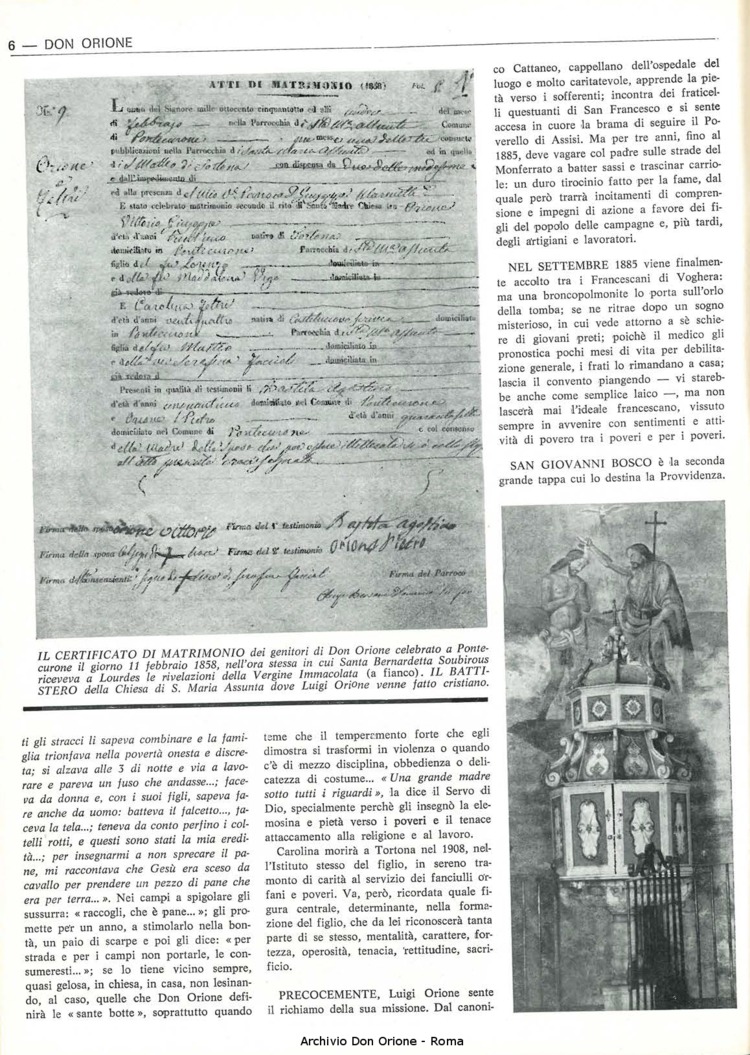 6 — DON ORIONE
ATTI DI MATRIMONIO (1858)
No. 9.
Orione
e
Feltri
L'anno del Signore mille ottocento cinquantotto ed alli undici del mese
di Febbraio nella Parrocchia di Sta Ma Assunta Comune
di Pontecurone
pubblicazioni nella Parrocchia di Santa Maria Assunta ed in quella
di S. Matteo di Tortona con dispensa da
e dall'impedimento di
ed alla presenza del
È stato celebrato matrimonio secondo il rito di Santa Madre Chiesa tra Orione
Vittorio Giuseppe
d'età d'anni nativo di Tortona
domiciliato in Pontecurone Parrocchia di Sta Ma Assunta
figlio del fu Lorenzo domiciliato in
e della fu Maddalena domiciliata in
già vedovo di
E Carolina Feltri
d'età d'anni ventiquattro nativa di domiciliata
in Pontecurone Parrocchia di Sta Ma Assunta
figlia del fu Matteo domiciliato in
e della Serafina domiciliata in
già vedova di
Presenti in qualità di testimonii li Bastita Agostino
d'età d'anni domiciliato nel Comune di Pontecurone
e Orione Pietro d'età d'anni
domiciliato nel Comune di Pontecurone e col consenso
della Madre della Sposa
Firma dello sposo orione vittorio Firma del 1° testimonio Bastita Agostino
Firma della sposa Firma del 2° testimonio Orione Pietro
Firma dei consenzienti Firma del Parroco
IL CERTIFICATO DI MATRIMONIO dei genitori di Don Orione celebrato a Ponte-
curone il giorno 11 febbraio 1858, nell'ora stessa in cui Santa Bernardetta Soubirous
riceveva a Lourdes le rivelazioni della Vergine Immacolata (a fianco). IL BATTI-
STERO della Chiesa di S. Maria Assunta dove Luigi Orione venne fatto cristiano.
ti gli stracci li sapeva combinare e la fami-
glia trionfava nella povertà onesta e discre-
ta; si alzava alle 3 di notte e via a lavo-
rare e pareva un fuso che andasse...; face-
va da donna e, con i suoi figli, sapeva fa-
re anche da uomo: batteva il falcetto..., fa-
ceva la tela...; teneva da conto perfino i col-
telli rotti, e questi sono stati la mia eredi-
tà...; per insegnarmi a non sprecare il pa-
ne, mi raccontava che Gesù era sceso da
cavallo per prendere un pezzo di pane che
era per terra... ». Nei campi a spigolare gli
sussurra: « raccogli, che è pane... »; gli pro-
mette per un anno, a stimolarlo nella bon-
tà, un paio di scarpe e poi gli dice: « per
strada e per i campi non portarle, le con-
sumeresti... »; se lo tiene vicino sempre,
quasi gelosa, in chiesa, in casa, non lesinan-
do, al caso, quelle che Don Orione defi-
nirà le « sante botte », soprattutto quando
teme che il temperemento forte che egli
dimostra si trasformi in violenza o quando
c'è di mezzo disciplina, obbedienza o deli-
catezza di costume... « Una grande madre
sotto tutti i riguardi », la dice il Servo di
Dio, specialmente perchè gli insegnò la ele-
mosina e pietà verso i poveri e il tenace
attaccamento alla religione e al lavoro.
Carolina morirà a Tortona nel 1908, nel-
l'Istituto stesso del figlio, in sereno tra-
monto di carità al servizio dei fanciulli or-
fani e poveri. Va, però, ricordata quale fi-
gura centrale, determinante, nella forma-
zione del figlio, che da lei riconoscerà tanta
parte di se stesso, mentalità, carattere, for-
tezza, operosità, tenacia, rettitudine, sacri-
ficio.
PRECOCEMENTE, Luigi Orione sente
il richiamo della sua missione. Dal canoni-
co Cattaneo, cappellano dell'ospedale del
luogo e molto caritatevole, apprende la pie-
tà verso i sofferenti; incontra dei fraticel-
li questuanti di San Francesco e si sente
accesa in cuore la brama di seguire il Po-
verello di Assisi. Ma per tre anni, fino al
1885, deve vagare col padre sulle strade del
Monferrato a batter sassi e trascinar carrio-
le: un duro tirocinio fatto per la fame, dal
quale però trarrà incitamenti di compren-
sione e impegni di azione a favore dei fi-
gli del popolo delle campagne e, più tardi,
degli artigiani e lavoratori.
NEL SETTEMBRE 1885 viene finalmen-
te accolto tra i Francescani di Voghera:
ma una broncopolmonite lo porta sull'orlo
della tomba; se ne ritrae dopo un sogno
misterioso, in cui vede attorno a sè schie-
re di giovani preti; poichè il medico gli
pronostica pochi mesi di vita per debilita-
zione generale, i frati lo rimandano a casa;
lascia il convento piangendo — vi stareb-
be anche come semplice laico —, ma non
lascerà mai l'ideale francescano, vissuto
sempre in avvenire con sentimenti e atti-
vità di povero tra i poveri e per i poveri.
SAN GIOVANNI BOSCO è la seconda
grande tappa cui lo destina la Provvidenza.
Archivio Don Orione - Roma